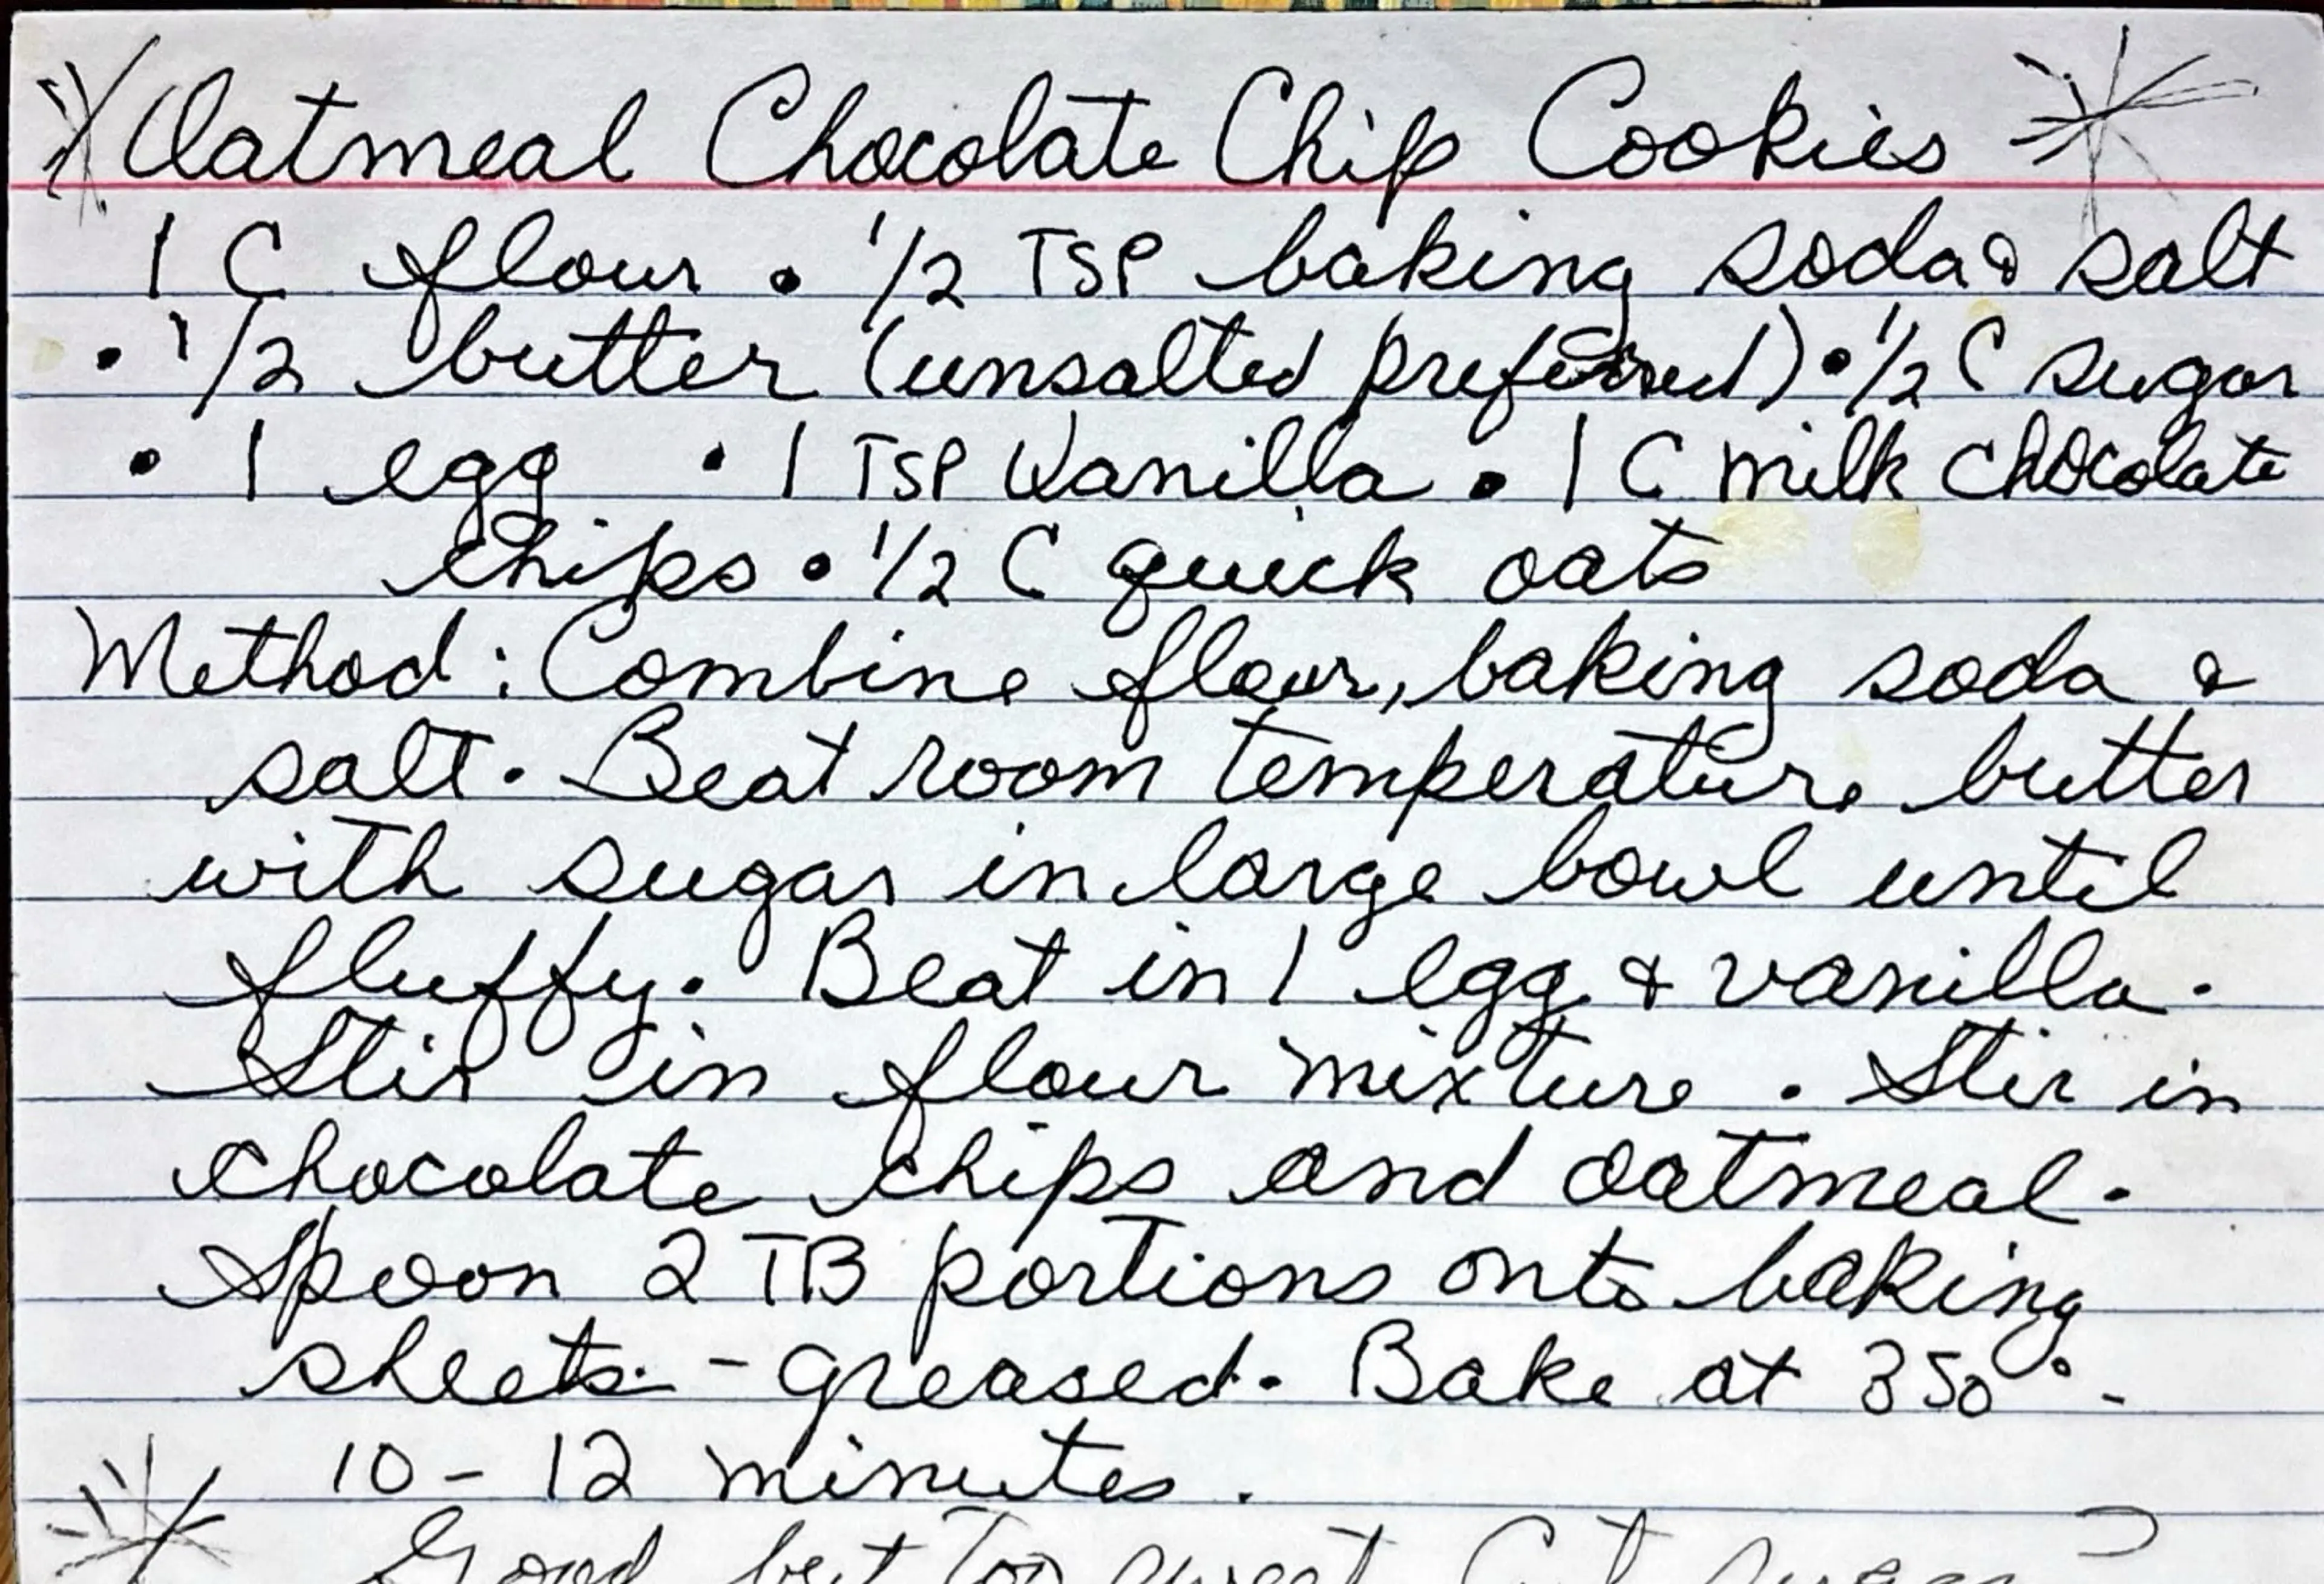 Oatmeal Chocolate Chip Cookies
1 C flour • 1/2 TSP baking soda & salt
• 1/2 butter (unsalted preferred) • 1/2 C sugar
• 1 egg • 1 TSP Vanilla • 1 C milk chocolate
chips • 1/2 C quick oats
Method: Combine flour, baking soda &
salt. Beat room temperature butter
with sugar in large bowl until
fluffy. Beat in 1 egg & vanilla.
Stir in flour mixture. Stir in
chocolate chips and oatmeal.
Spoon 2 TB portions onto baking
sheets - greased. Bake at 350° -
10 - 12 minutes.
Good but too sweet Cut sugar?